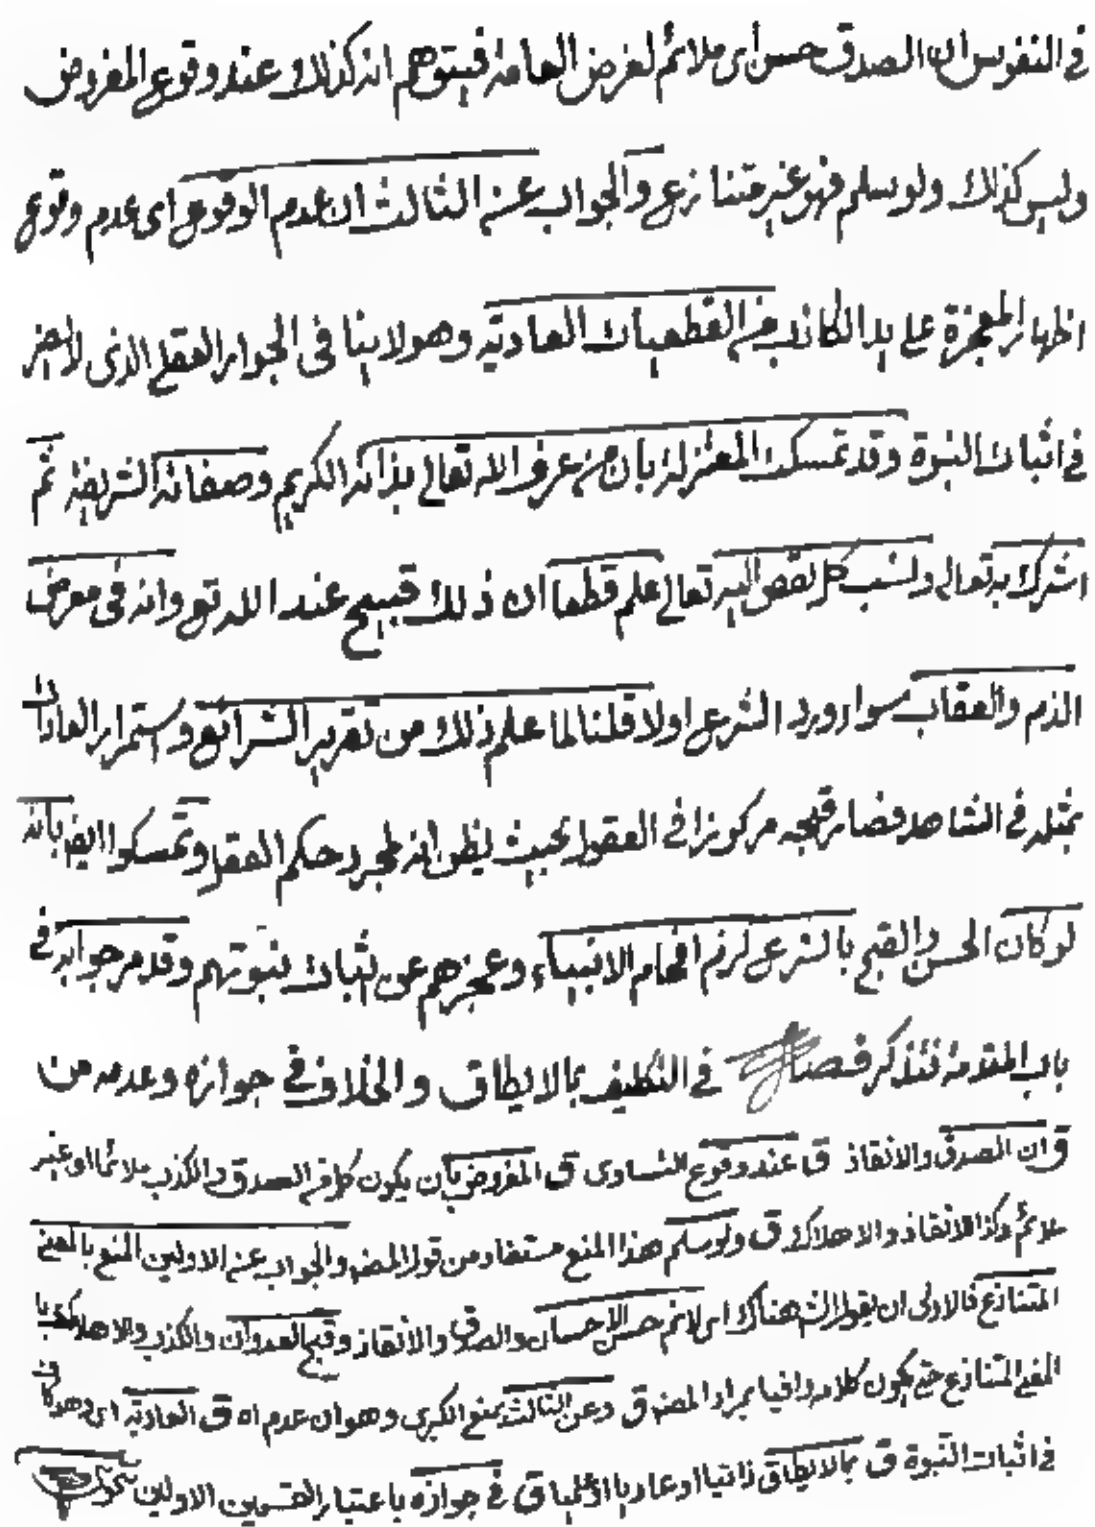 في النفوس ان الصدق حسن أي ملائم لغرض العامة فيتوهم انه كذلك وعند وقوع المفروض
وليس كذلك ولو سلم فهو غير متنازع والجواب عن الثالث ان عدم الوقوع اى عدم وقوع
اظهار المعجزة على يد الكاذب من القطعيات العادية وهو لا ينافى الجواز العقلى الذى لا يضر
في اثبات النبوة وقد تمسكت المعتزلة بان من عرف الله تعالى بذاته الكريم وصفاته الشريفة ثم
اشرك به تعالى ونسب كل نقص اليه تعالى علم قطعا ان ذلك قبيح عند الله تع وانه في معرض
الذم والعقاب سواء ورد الشرع اولا قلنا لما علم ذلك من تقرير الشرائع واستمرار العادات
بمثله في الشاهد فصار قبحه مركوزا في العقول بحيث يظن انه لمجرد حكم العقل وتمسكوا ايضا بانه
لو كان الحسن والقبح بالشرع لزم افحام الانبياء وعجزهم عن اثبات نبوتهم وقد مر جوابه في
باب المقدمة فتذكر فصل في التكليف بما لا يطاق والخلاف في جوازه وعدمه من
ق ان الصدق والانقاذ ق عند وقوع التساوى ق المفروض بان يكون كل من الصدق والكذب ملائما او غير
ملائم وكذا الانقاذ والاهلاك ق ولو سلم هذا المنع مستفاد من قول المصنف والجواب عن الاولين المنع بالمعنى
المتنازع فالاولى ان يقول هناك اى لا نم حسن الاحسان والصدق والانقاذ وقبح العدوان والكذب والاهلاك با
المعنى المتنازع حتى يكون كلامه وافيا بمراد المصنف ق وعن الثالث بمنع الكبرى وهو ان عدم اه ق العادية اى وهو كاف
في اثبات النبوة ق بما لا يطاق ذاتيا او عاديا ق في جوازه باعتبار القسمين الاولين